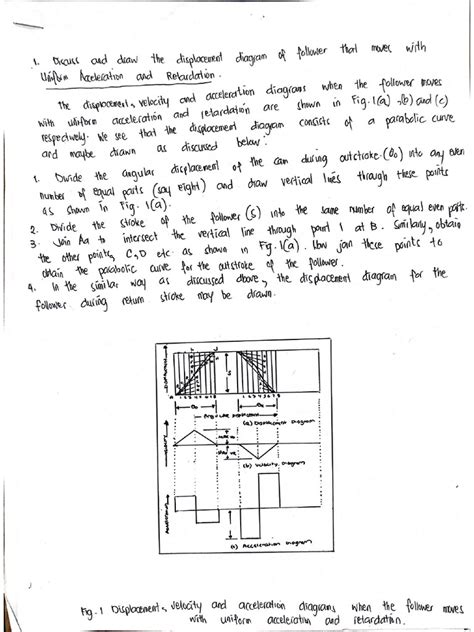 1. Discuss and draw the displacement diagram of follower that moves with
Uniform Acceleration and Retardation.
The displacement, velocity and acceleration diagrams when the follower moves
with uniform acceleration and retardation are shown in Fig. 1(a) -(b) and (c)
respectively. We see that the displacement diagram consists of a parabolic curve
and maybe drawn as discussed below:
1. Divide the angular displacement of the cam during outstroke (θo) into any even
number of equal parts (say eight) and draw vertical lines through these points
as shown in Fig. 1(a).
2. Divide the stroke of the follower (S) into the same number of equal even parts.
3. Join Aa to intersect the vertical line through point 1 at B. Similarly, obtain
the other points, C, D etc. as shown in Fig. 1(a). Now join these points to
obtain the parabolic curve for the outstroke of the follower.
4. In the similar way as discussed above, the displacement diagram for the
follower during return stroke may be drawn.
(a) Displacement Diagram
(b) Velocity Diagram
(c) Acceleration Diagram
Fig. 1 Displacement, velocity and acceleration diagrams when the follower moves
with uniform acceleration and retardation.